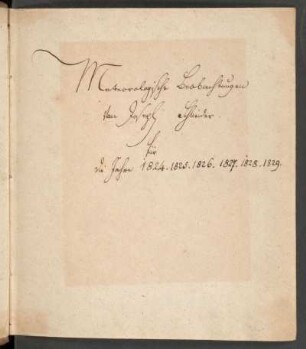 Meteorologische Beobachtungen
von Joseph Schneider
für
die Jahre 1824. 1825. 1826. 1827. 1828. 1829.